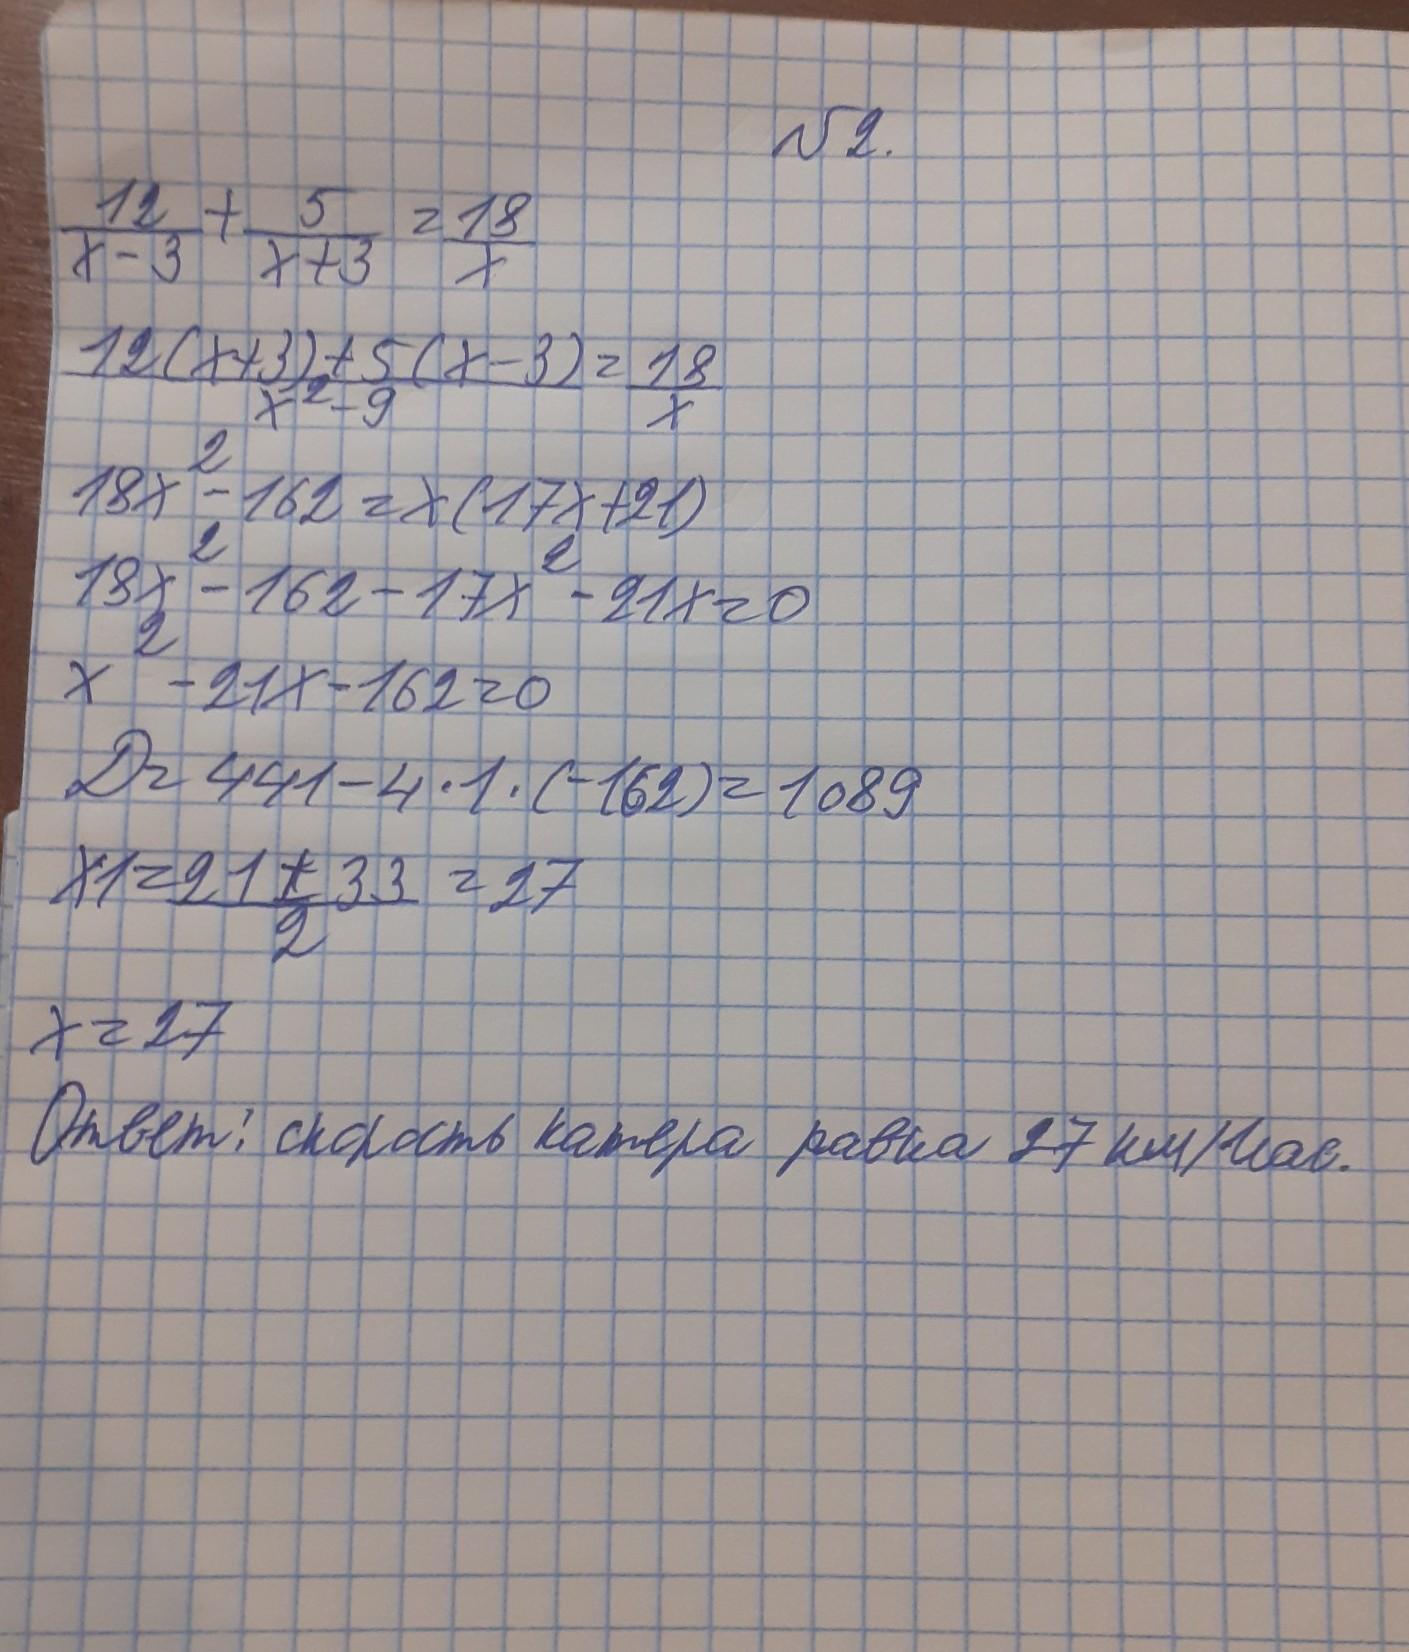 №2.
12/(x-3) + 5/(x+3) = 18/x
(12(x+3)+5(x-3))/(x²-9) = 18/x
18x²-162=x(17x+21)
18x²-162-17x²-21x=0
x²-21x-162=0
D=441-4·1·(-162)=1089
x1=(21±33)/2=27
x=27
Ответ: скорость катера равна 27 км/час.